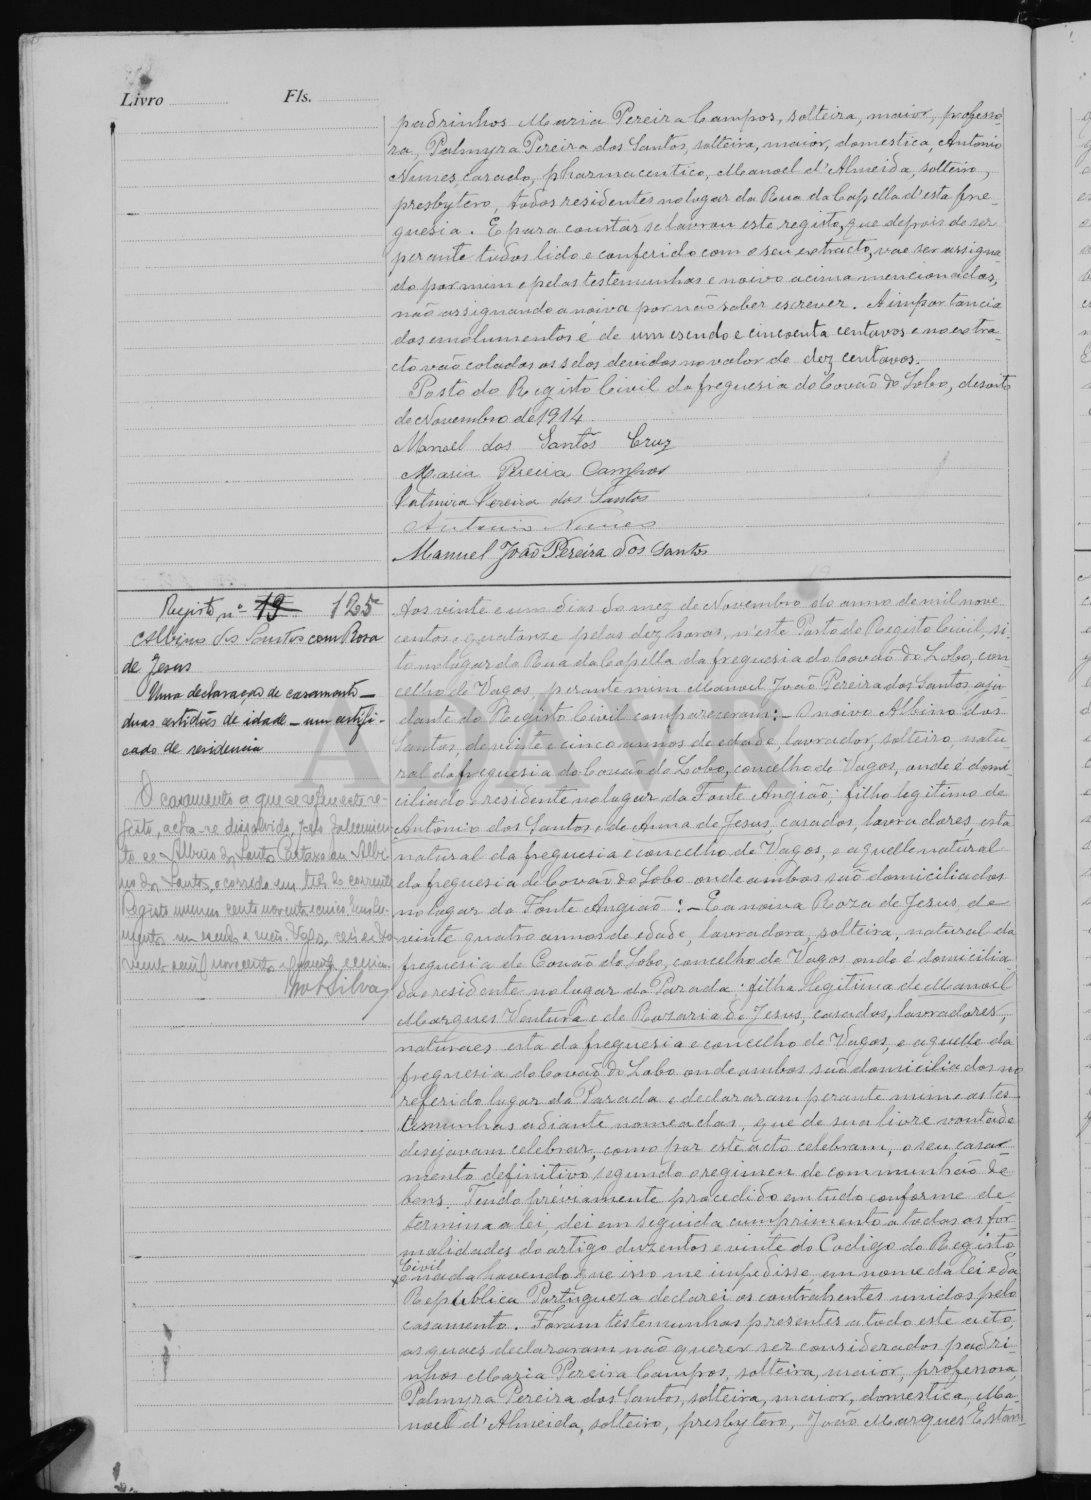 Livro Fls.
padrinhos Maria Pereira Campos, solteira, maior, professo-
ra, Palmyra Pereira dos Santos, solteira, maior, domestica, Antonio
Nunes, casado, pharmaceutico, Manoel d'Almeida, solteiro,
presbytero, todos residentes no lugar da Rua da Capella d'esta fre-
guesia. E para constar se lavrou este registo, que depois de ser
perante todos lido e conferido com o seu extracto, vae ser assigna-
do por mim e pelas testemunhas e noivo acima mencionados,
não assignando a noiva por não saber escrever. A importancia
dos emolumentos é de um escudo e cincoenta centavos e no extra-
cto vão colados os selos devidos no valor de dez centavos.
Posto do Registo Civil da freguesia do Covão do Lobo, desoito
de Novembro de 1914
Manoel dos Santos Cruz
Maria Pereira Campos
Palmira Pereira dos Santos
Antonio Nunes
Manuel João Pereira dos Santos
Registo nº 19 125
Albino dos Santos com Rosa
de Jesus
Uma declaração de casamento -
duas certidões de idade - um certifi-
cado de residencia
O casamento a que se refere este re-
gisto, acha-se dissolvido, pelo falecimen-
to de Albino dos Santos Cartaxo ou Albi-
no dos Santos, ocorrido em tres do corrente
Registo numero cento noventa e cinco. Emolu-
mentos um escudo e meio. Vagos, seis de
novecentos e quarenta e
Silva
Aos vinte e um dias do mez de Novembro do anno de mil nove
centos e quatorze pelas dez horas, n'este Posto do Registo Civil, si-
to no lugar da Rua da Capella da freguesia do Covão do Lobo, con-
celho de Vagos, perante mim Manoel João Pereira dos Santos aju-
dante do Registo Civil compareceram: - O noivo Albino dos
Santos, de vinte e cinco annos de edade, lavrador, solteiro, natu-
ral da freguesia do Covão do Lobo, concelho de Vagos, onde é domi-
ciliado e residente no lugar da Fonte Angião; filho legitimo de
Antonio dos Santos e de Anna de Jesus, casados, lavradores, esta
natural da freguesia e concelho de Vagos, e aquelle natural
da freguesia de Covão do Lobo onde ambos são domiciliados
no lugar da Fonte Angião: - E a noiva Roza de Jesus, de
vinte quatro annos de edade, lavradora, solteira, natural da
freguesia de Covão do Lobo, concelho de Vagos onde é domicilia
da e residente no lugar da Parada: filha legitima de Manoel
Marques Ventura e de Rozaria de Jesus, casados, lavradores,
naturaes esta da freguesia e concelho de Vagos, e aquelle da
freguesia do Covão do Lobo onde ambos são domiciliados no
referido lugar da Parada e declararam perante mim e as tes-
temunhas adiante nomeadas, que de sua livre vontade
desejavam celebrar, como por este acto celebram, o seu casa-
mento definitivo segundo o regimen de communhão de
bens. Tendo préviamente procedido em tudo conforme de-
termina a lei, dei em seguida cumprimento a todas as for-
malidades do artigo duzentos e vinte do Codigo do Registo
Civil
e nada havendo que isso me impedisse, em nome da lei e da
Republica Portugueza declarei os contrahentes unidos pelo
casamento. Foram testemunhas presentes a todo este acto,
as quaes declararam não querer ser considerados padri-
nhos Maria Pereira Campos, solteira, maior, professora,
Palmyra Pereira dos Santos, solteira, maior, domestica, Ma-
noel d'Almeida, solteiro, presbytero, João Marques Estan-
ADAVR